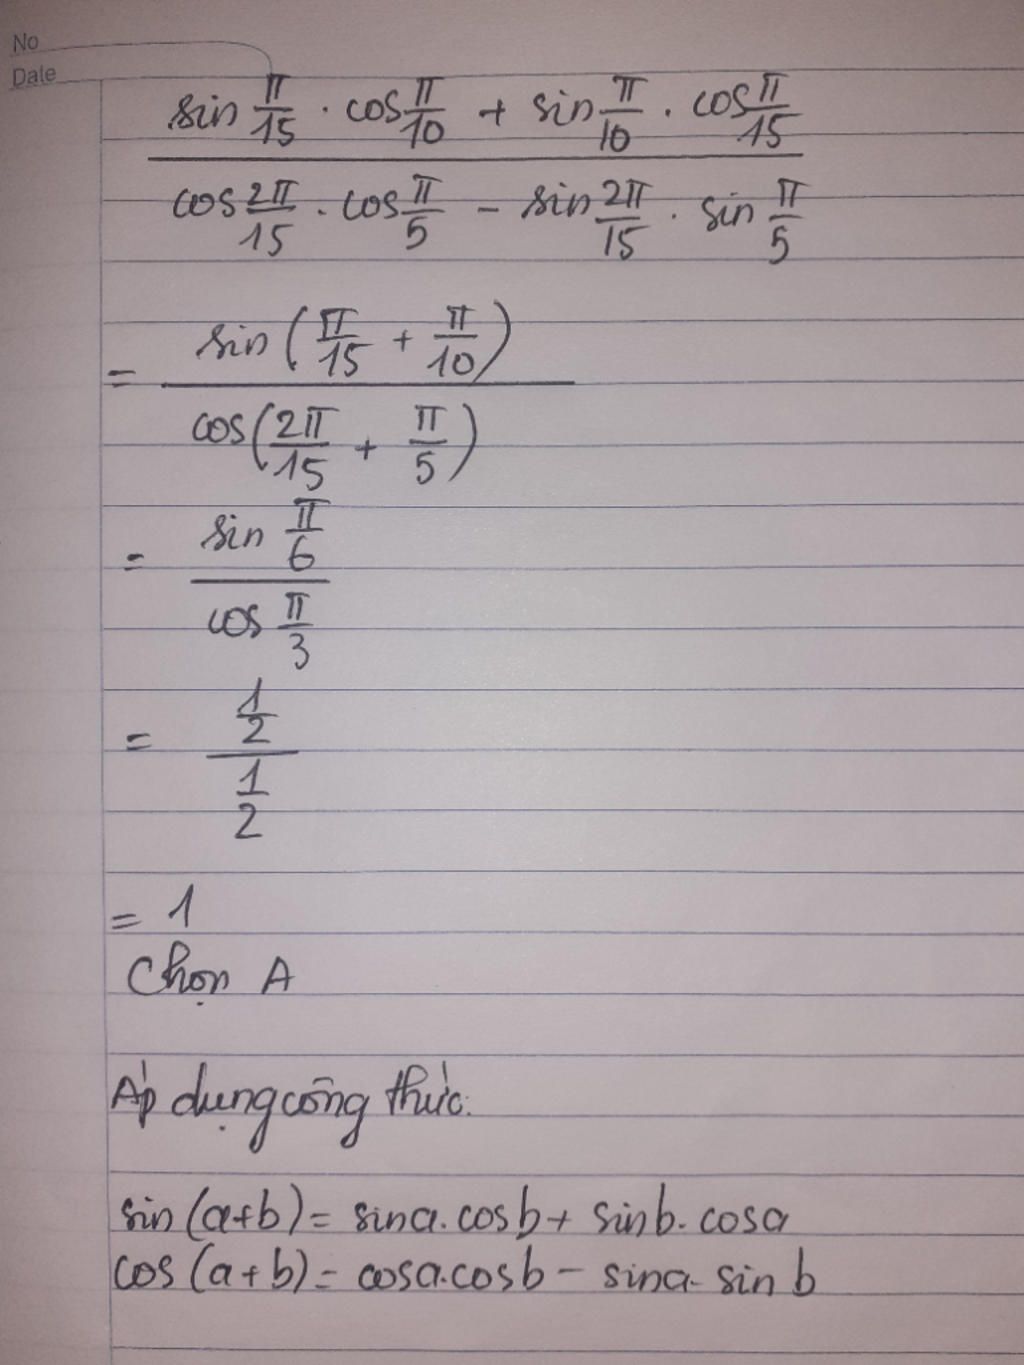 No
Date
sin π/15 · cos π/10 + sin π/10 · cos π/15
cos 2π/15 · cos π/5 - sin 2π/15 · sin π/5
= sin (π/15 + π/10)
cos (2π/15 + π/5)
= sin π/6
cos π/3
= 1/2
1/2
= 1
Chọn A
Áp dụng công thức:
sin (a+b) = sina.cosb + sinb.cosa
cos (a+b) = cosa.cosb - sina.sinb